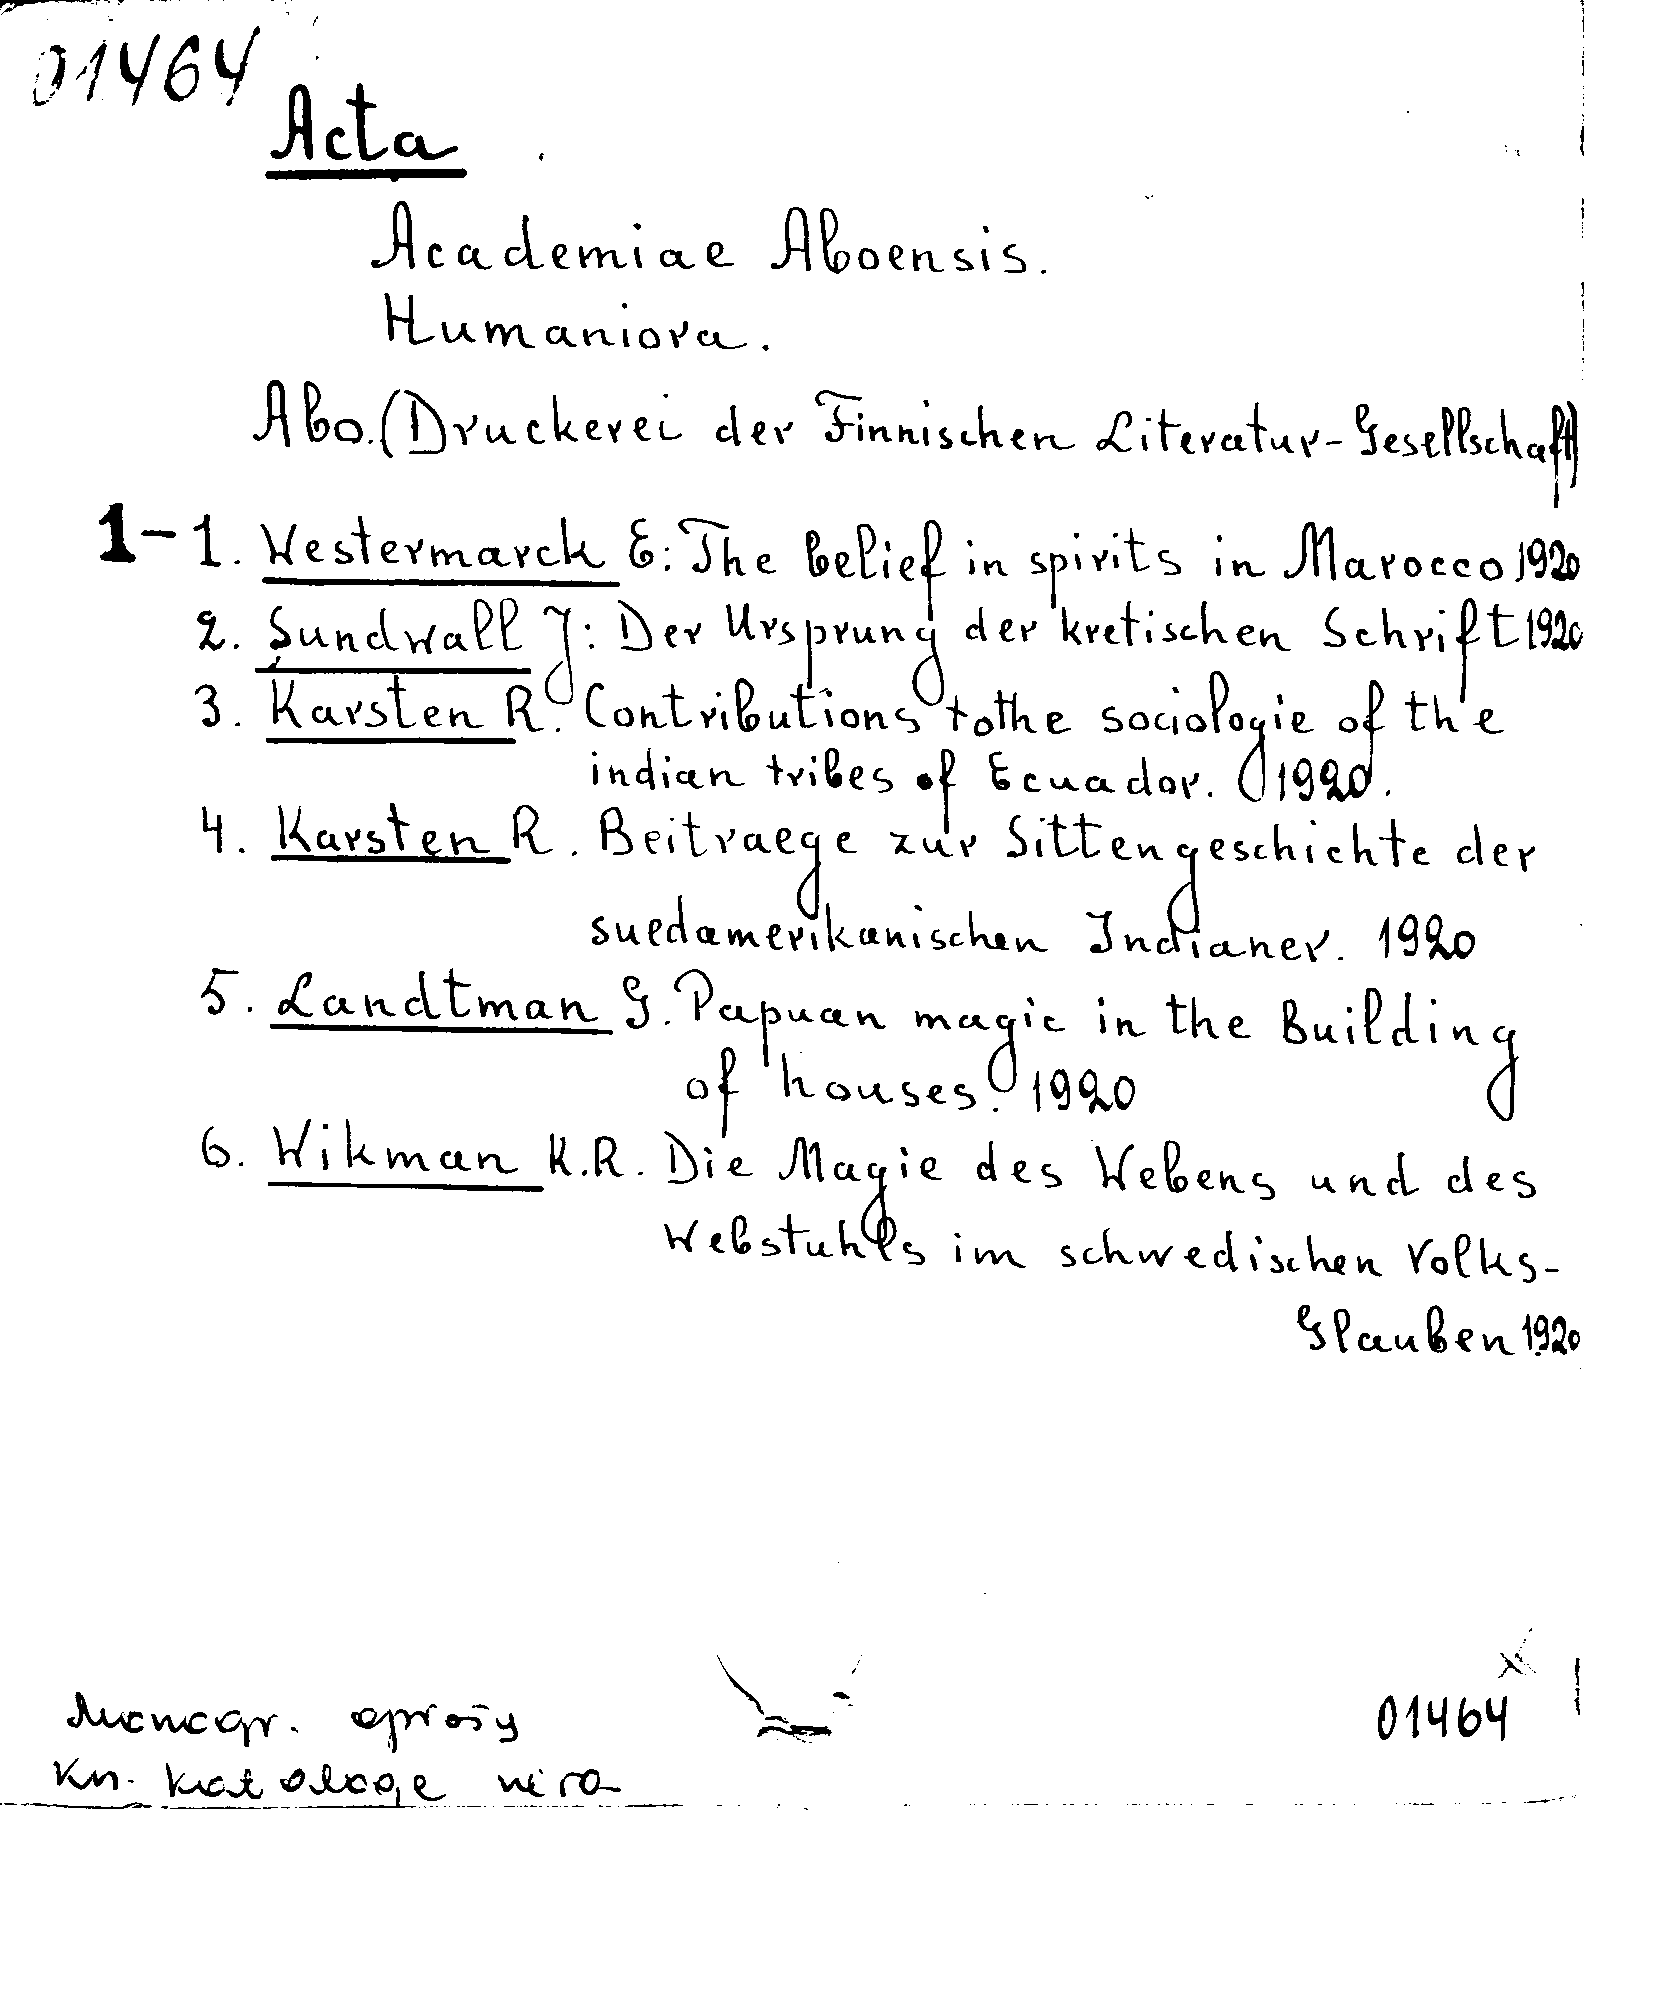 01464
Acta
Academiae Aboensis.
Humaniora.
Abo. (Druckerei der Finnischen Literatur-Gesellschaft)
1-1. Westermarck E: The belief in spirits in Marocco 1920
2. Sundwall J: Der Ursprung der kretischen Schrift 1920
3. Karsten R. Contributions to the sociologie of the
indian tribes of Ecuador. 1920.
4. Karsten R. Beitraege zur Sittengeschichte der
suedamerikanischen Indianer. 1920
5. Landtman G. Papuan magic in the Building
of houses. 1920
6. Wikman K.R. Die Magie des Webens und des
Webstuhls im schwedischen Volks-
Glauben 1920
Monogr. aprašy
kn. kataloge nėra
01464